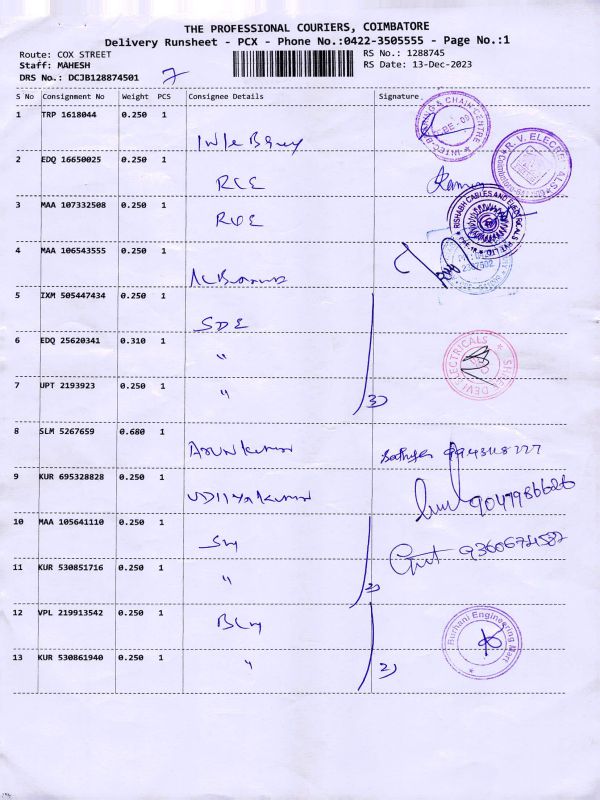 THE PROFESSIONAL COURIERS, COIMBATORE
Delivery Runsheet - PCX - Phone No.:0422-3505555 - Page No.:1
Route: COX STREET
RS No.: 1288745
Staff: MAHESH
RS Date: 13-Dec-2023
DRS No.: DCJB128874501 7
S No Consignment No Weight PCS Consignee Details Signature
1 TRP 1618044 0.250 1
2 EDQ 16650025 0.250 1 RCE
R. V. ELECTRICALS
3 MAA 107332508 0.250 1 RUE
RISHABH CABLES AND ELECTRICALS PVT LTD
4 MAA 106543555 0.250 1
5 IXM 505447434 0.250 1 SDE
6 EDQ 25620341 0.310 1 "
SHREE DEVI ELECTRICALS
7 UPT 2193923 0.250 1 " 3)
8 SLM 5267659 0.680 1 Arun kumar
9 KUR 695328828 0.250 1 Udhya kumar
10 MAA 105641110 0.250 1
11 KUR 530851716 0.250 1 " 2)
12 VPL 219913542 0.250 1
Burhani Engineering Mart
13 KUR 530861940 0.250 1 " 2)